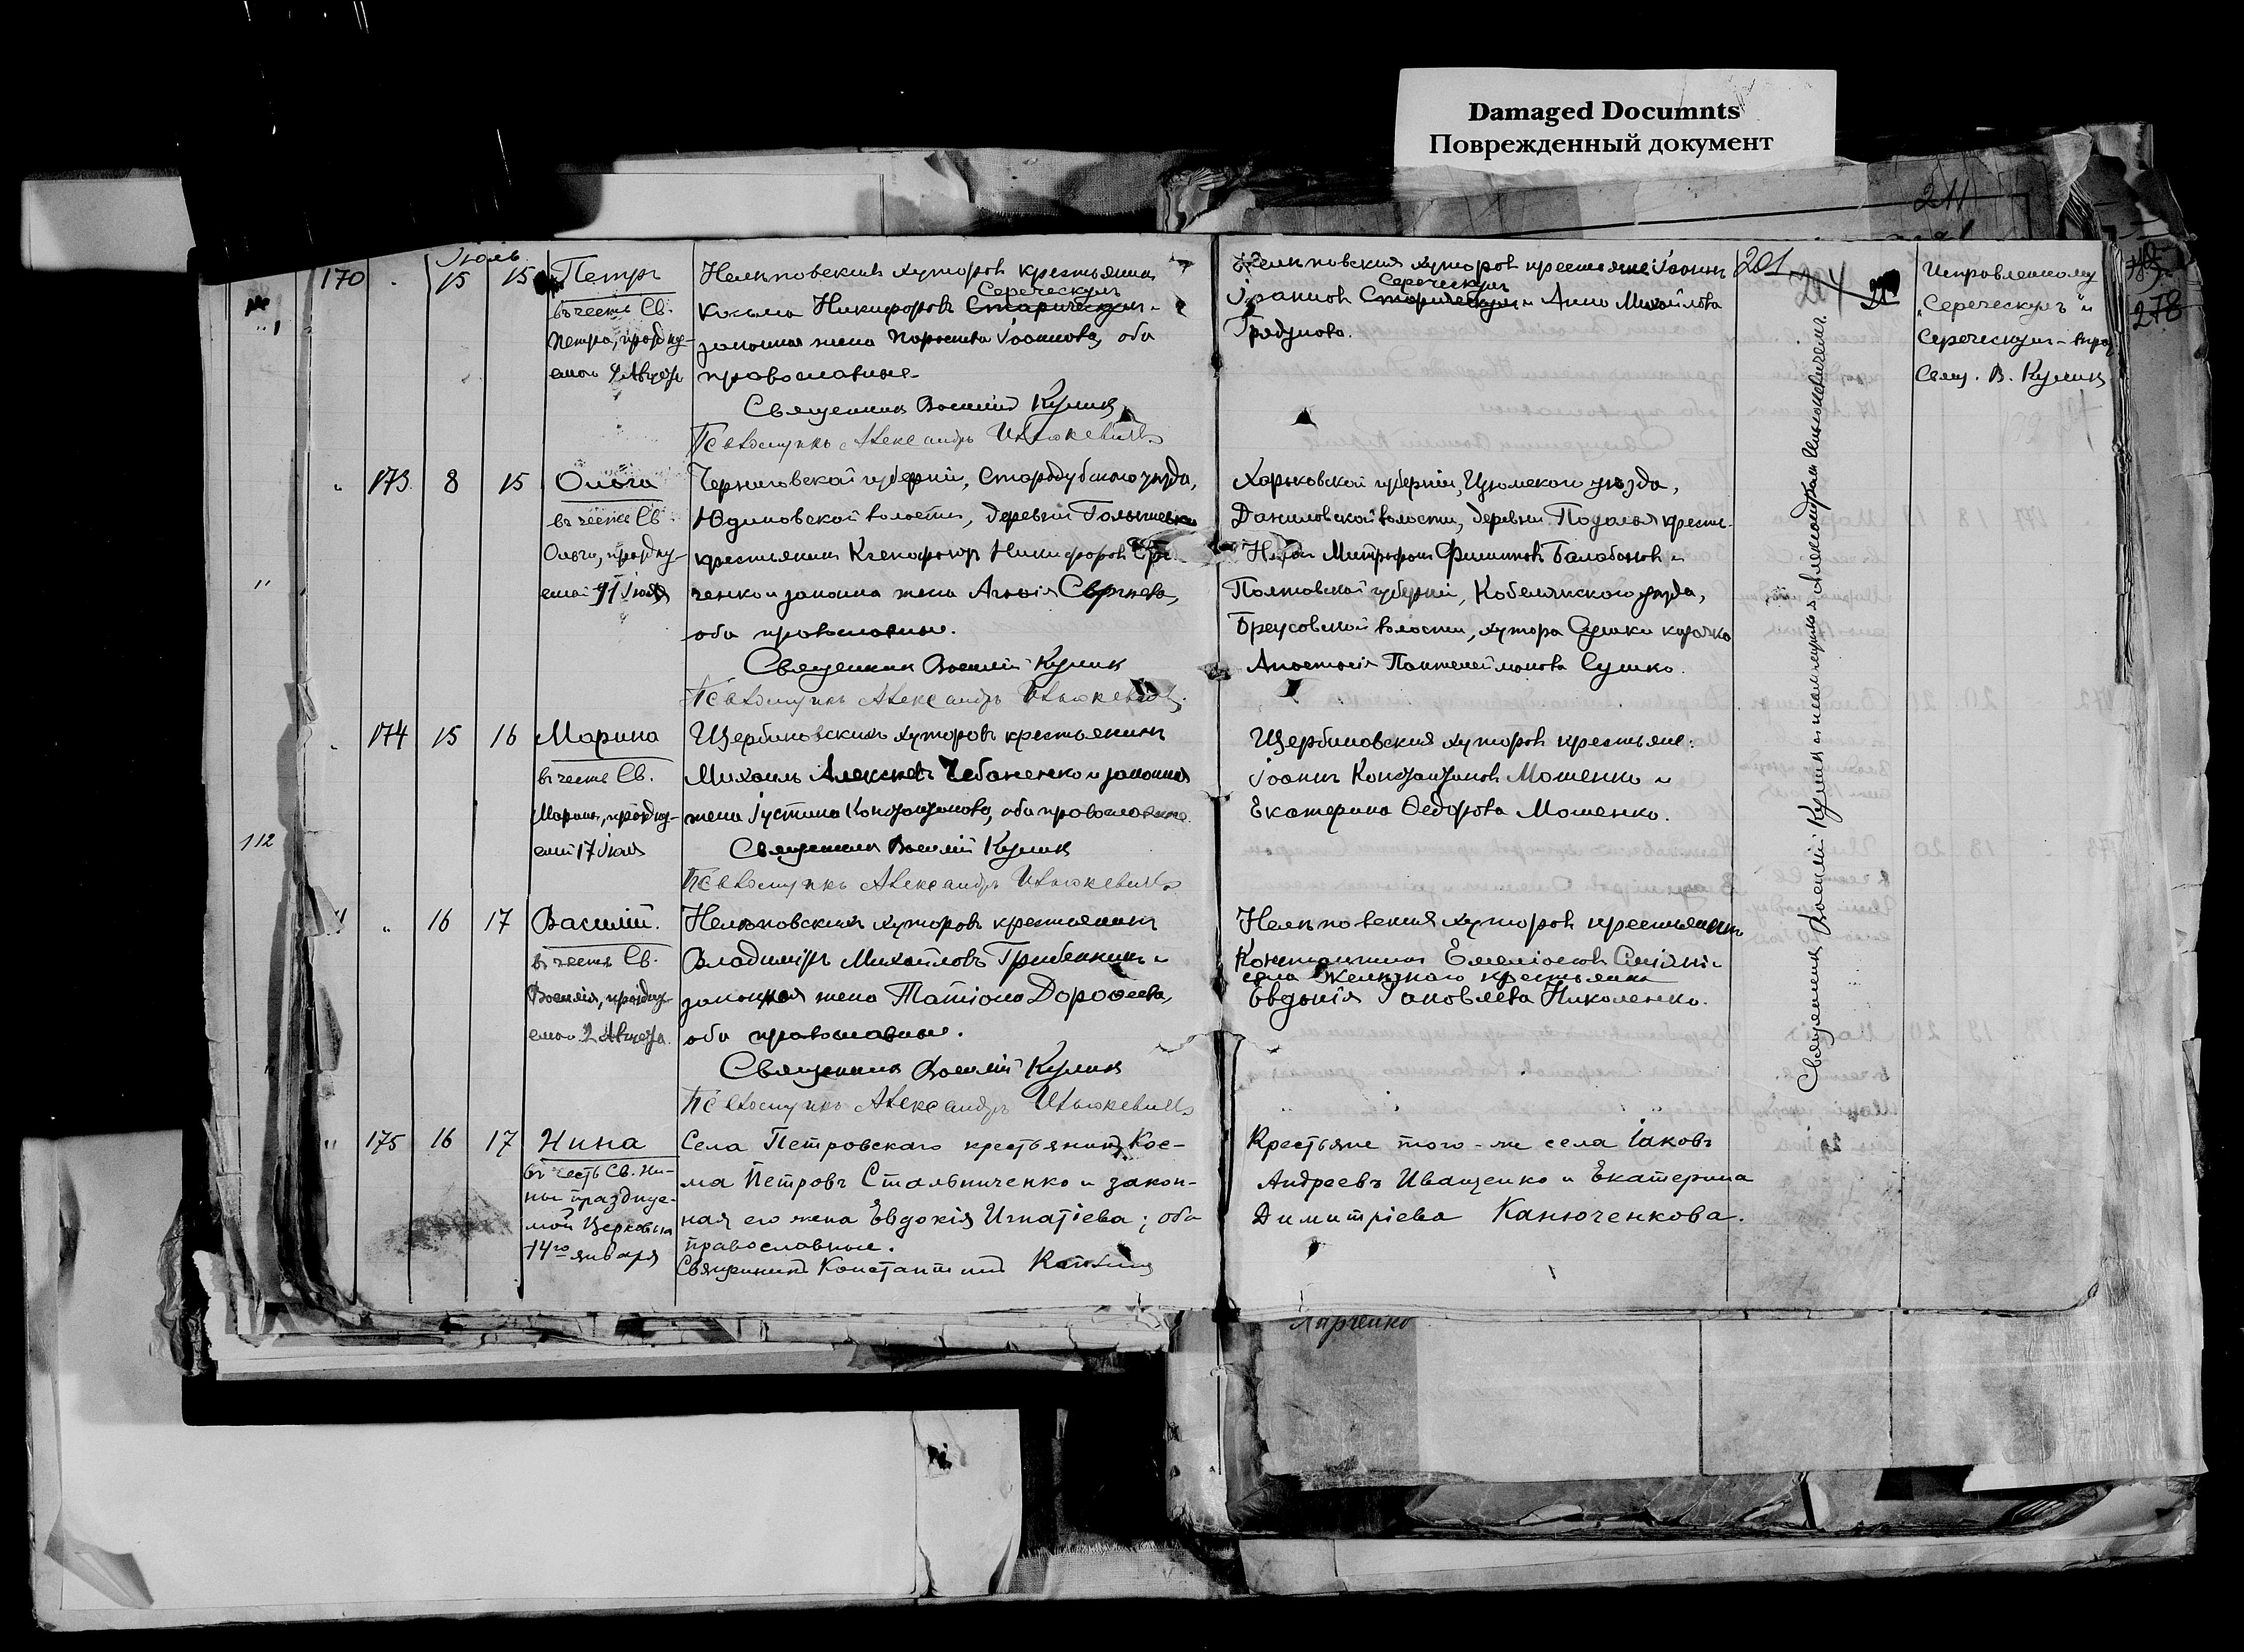 Damaged Documnts
Поврежденный документ
211
Іюль
170 15 15 Петръ
въ честь Св.
Петра, праздну-
емаго Августа
Нелѣповскихъ хуторовъ крестьянинъ
Козьма Никифоровъ Старическулъ и
Сереческулъ
законная жена Іоаннова, оба
православные
Священникъ Василій Куликъ
Псаломщикъ Александръ
Нелѣповскихъ хуторовъ крестьяне Іоаннъ
Сереческулъ
и Анна Михайлова
201
204
Исправленному
„Сереческулъ" и
Сереческулъ - вѣрить
Свящ. В. Куликъ
278
" 173 8 15 Ольга
въ честь Св.
Ольги, праздну-
емой 11 Іюля
Черниговской губерніи, Стародубскаго уѣзда,
Юдиновской волости, деревни
крестьянинъ Ксенофонтъ Никифоровъ
ченко и законная жена Сергѣева,
оба православные.
Священникъ Василій Куликъ
Псаломщикъ Александръ
Харьковской губерніи, Изюмскаго уѣзда,
Даниловской волости, деревни крестья-
Митрофанъ Филипповъ Балабановъ и
Полтавской губерніи, Кобелякскаго уѣзда,
Бреусовской волости, хутора Сушки казачка
Анастасія Пантелеймонова Сушко.
" 174 15 16 Марина
въ честь Св.
Марины, праздну-
емой 17 Іюля
Щербиновскихъ хуторовъ крестьянинъ
Михаилъ Алексѣевъ Чебаненко и законная
жена Іустина Константинова, оба православные.
Священникъ Василій Куликъ
Псаломщикъ Александръ
Щербиновскихъ хуторовъ крестьяне:
Іоаннъ Константиновъ Мошенко и
Екатерина Ѳедорова Мошенко.
112
" " 16 17 Василій.
въ честь Св.
Василія, праздну-
емаго 2 Августа.
Нелѣповскихъ хуторовъ крестьянинъ
Владиміръ Михайловъ Гребенкинъ и
законная жена Татіана Дороѳеева,
оба православные.
Священникъ Василій Куликъ
Псаломщикъ Александръ
Нелѣповскихъ хуторовъ крестьянинъ
Константинъ Емеліановъ
села Желѣзнаго крестьянка
Евдокія Іаковлева Николенко.
" 175 16 17 Нина
въ честь Св. Ни-
ны празднуе-
мой Церковью
14го января
Села Петровскаго крестьянинъ Кос-
ма Петровъ Стальниченко и закон-
ная его жена Евдокія Игнатіева; оба
православные.
Священникъ Константинъ
Крестьяне того-же села Іаковъ
Андреевъ Иващенко и Екатерина
Димитріева Канюченкова.
Священникъ Василій Куликъ съ псаломщикомъ Александромъ